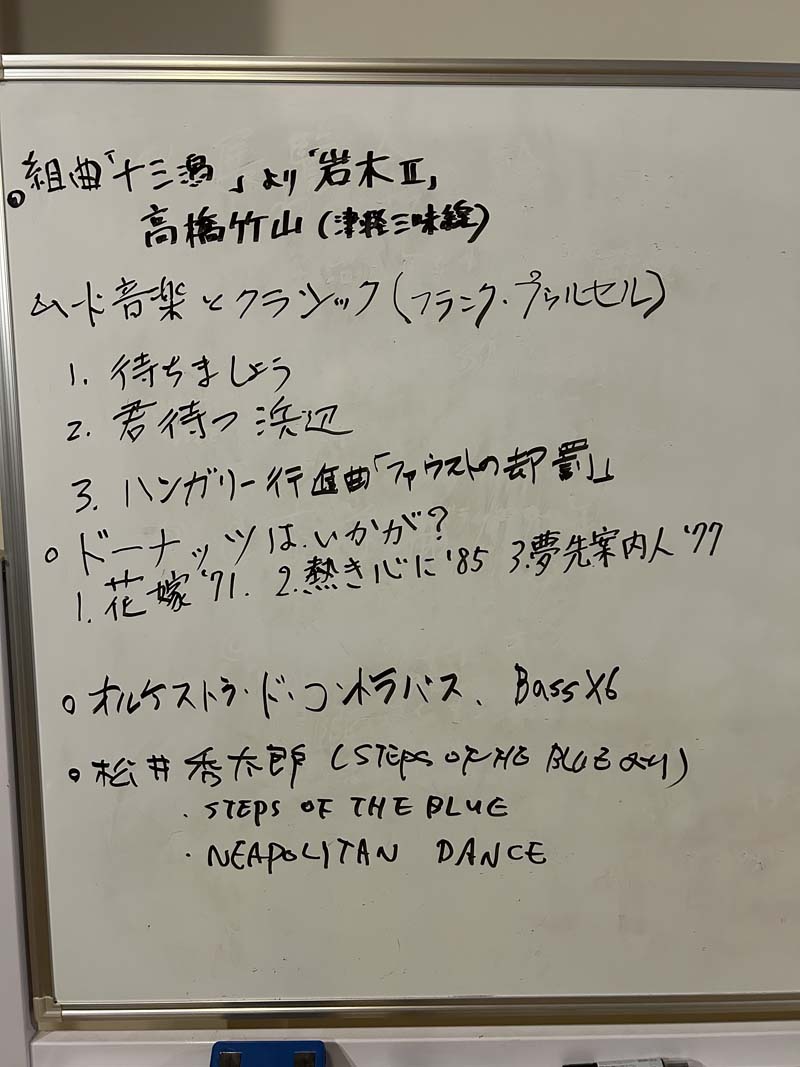 。組曲「十三潟」より「岩木Ⅱ」
高橋竹山(津軽三味線)
ムード音楽とクラシック(フランク・プゥルセル)
1. 待ちましょう
2. 君待つ浜辺
3. ハンガリー行進曲「ファウストの却罰」
○ ドーナッツはいかが?
1. 花嫁'71. 2.熱き心に'85 3.夢先案内人'77
○ オルケストラ・ド・コントラバス、Bass X6
○ 松井秀太郎(STEPS OF THE BLUE より)
・STEPS OF THE BLUE
・NEAPOLITAN DANCE